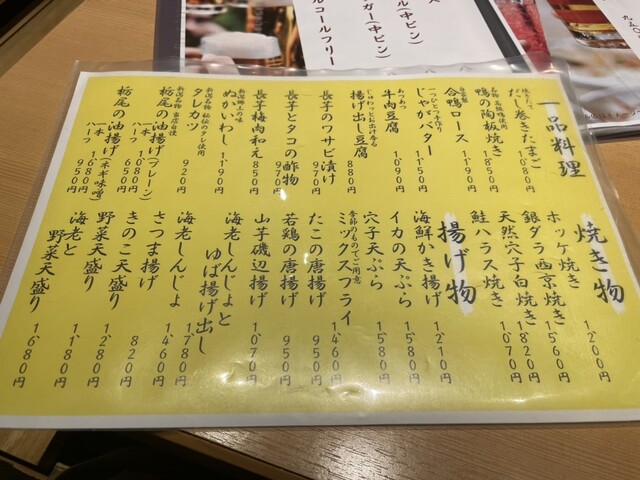 一品料理
焼きたて
だし巻きたまご 1,080円
名物 高級鴨使用
鴨の陶板焼き 1,850円
自家製
合鴨ロース 1,190円
じゃがバター 1,150円
あつあつ
牛肉豆腐 1,090円
じゅわっとお出汁香る
揚げ出し豆腐 880円
長芋のワサビ漬け 970円
長芋とタコの酢物 970円
長芋梅肉和え 850円
新潟郷土の味
ぬかいわし 1,190円
新潟名物 秘伝のタレ使用
タレカツ 920円
新潟名物 当店自慢
栃尾の油揚げ(プレーン)
一本 1,080円
ハーフ 650円
栃尾の油揚げ(ネギ味噌)
一本 1,680円
ハーフ 950円
焼き物
ホッケ焼き 1,200円
銀ダラ西京焼き 1,560円
天然穴子白焼き 1,820円
鮭ハラス焼き 1,070円
揚げ物
海鮮かき揚げ 1,210円
イカの天ぷら 1,580円
穴子天ぷら 1,580円
季節のものでご用意
ミックスフライ 1,460円
たこの唐揚げ 950円
若鶏の唐揚げ 950円
山芋磯辺揚げ 1,070円
海老しんじょと
ゆば揚げ出し 1,780円
海老しんじょ 1,460円
さつま揚げ 820円
きのこ天盛り 1,280円
野菜天盛り 1,180円
海老と
野菜天盛り 1,680円
(中ビン)
ガー(中ビン)
ルコールフリー